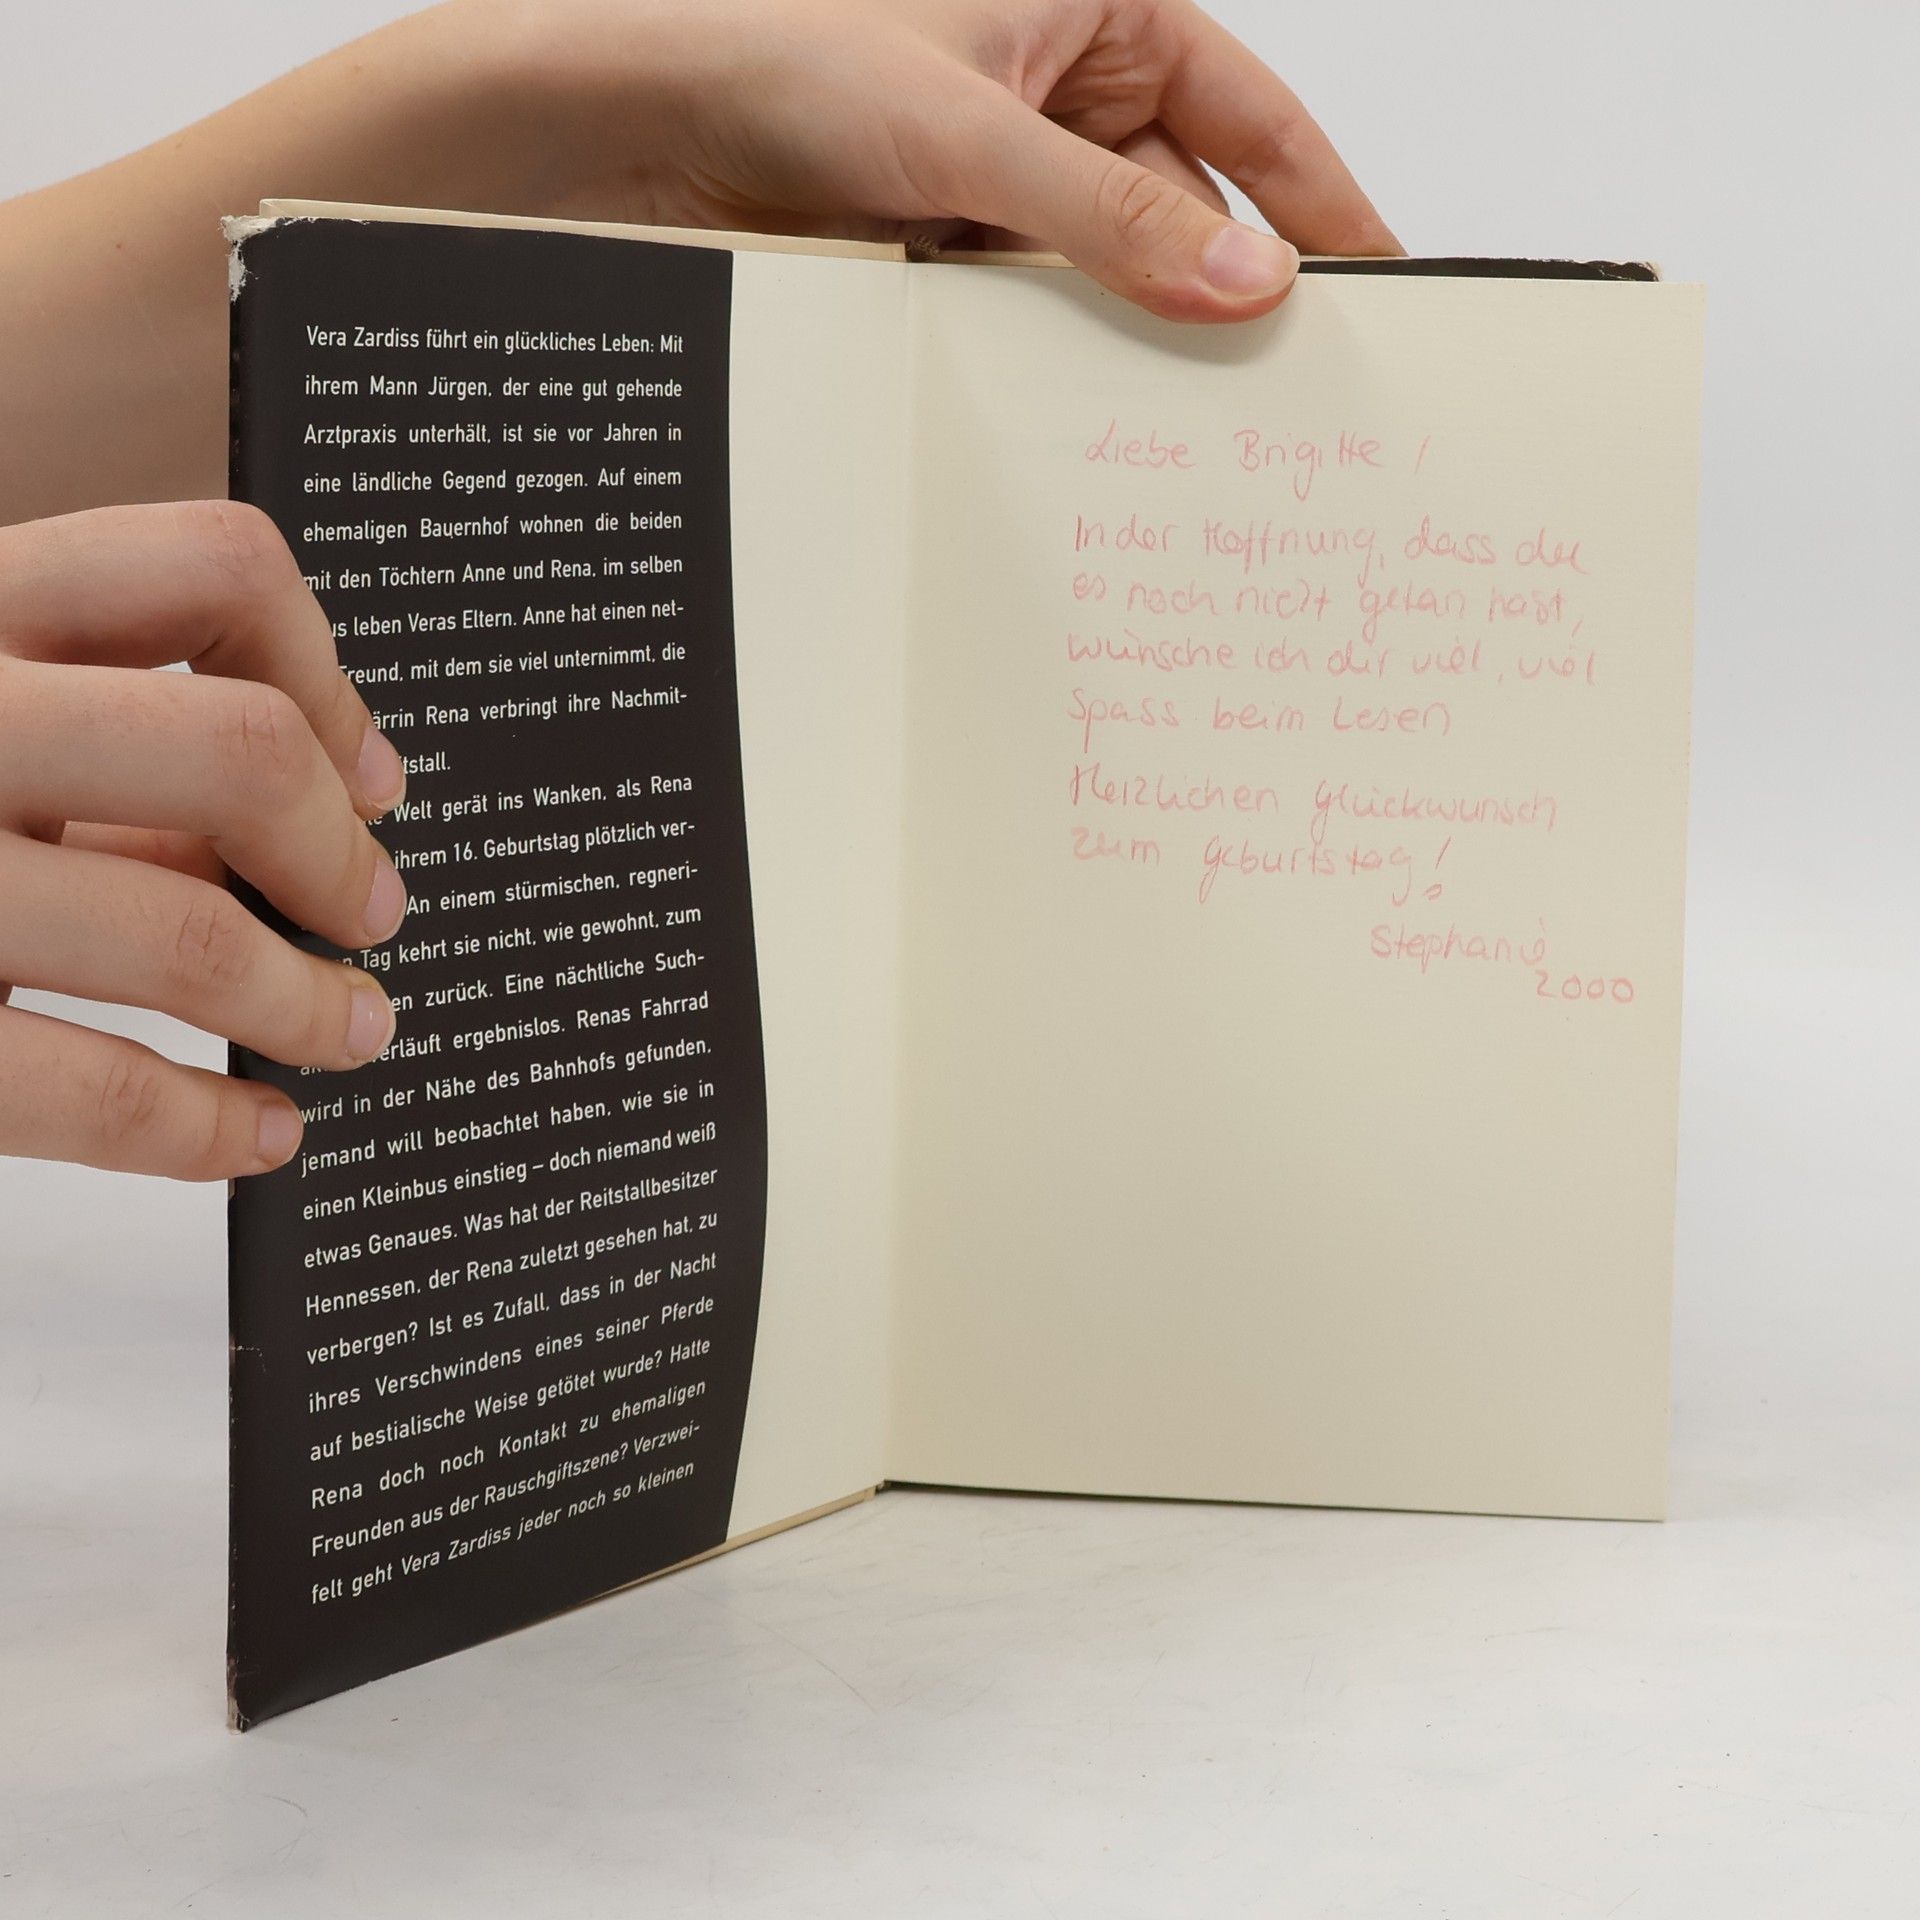 Vera Zardiss führt ein glückliches Leben: Mit
ihrem Mann Jürgen, der eine gut gehende
Arztpraxis unterhält, ist sie vor Jahren in
eine ländliche Gegend gezogen. Auf einem
ehemaligen Bauernhof wohnen die beiden
mit den Töchtern Anne und Rena, im selben
leben Veras Eltern. Anne hat einen net-
reund, mit dem sie viel unternimmt, die
ärrin Rena verbringt ihre Nachmit-
tstall.
Welt gerät ins Wanken, als Rena
ihrem 16. Geburtstag plötzlich ver-
An einem stürmischen, regneri-
Tag kehrt sie nicht, wie gewohnt, zum
en zurück. Eine nächtliche Such-
erläuft ergebnislos. Renas Fahrrad
wird in der Nähe des Bahnhofs gefunden,
jemand will beobachtet haben, wie sie in
einen Kleinbus einstieg – doch niemand weiß
etwas Genaues. Was hat der Reitstallbesitzer
Hennessen, der Rena zuletzt gesehen hat, zu
verbergen? Ist es Zufall, dass in der Nacht
ihres Verschwindens eines seiner Pferde
auf bestialische Weise getötet wurde? Hatte
Rena doch noch Kontakt zu ehemaligen
Freunden aus der Rauschgiftszene? Verzwei-
felt geht Vera Zardiss jeder noch so kleinen
Liebe Brigitte !
In der Hoffnung, dass du
es noch nicht getan hast,
wünsche ich dir viel, viel
Spass beim Lesen
Herzlichen Glückwunsch
zum Geburtstag!
Stephanie
2000